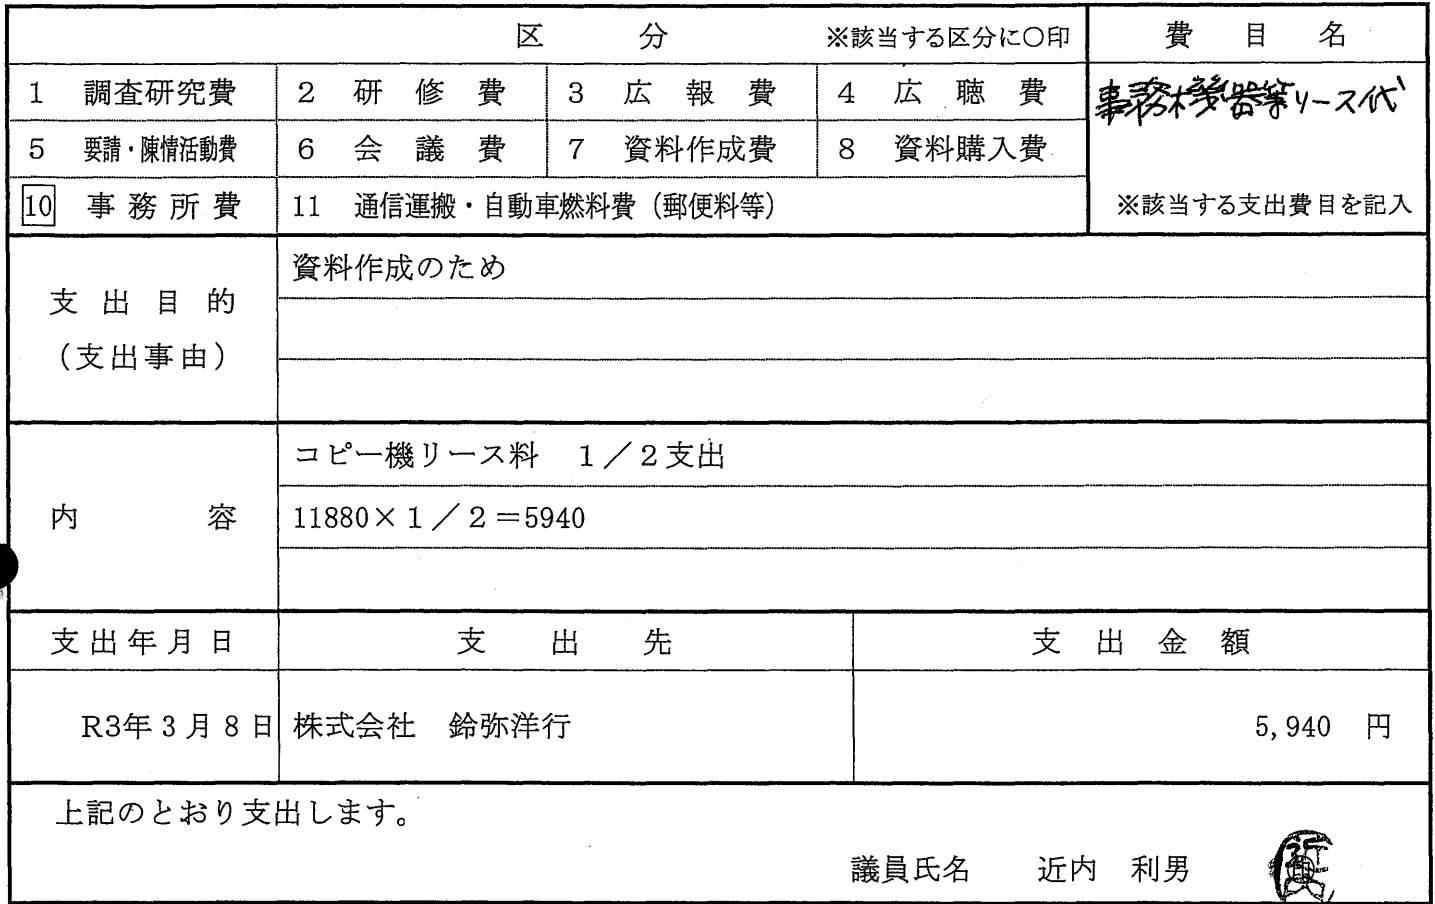 区 分 ※該当する区分に○印 費 目 名
1 調査研究費 2 研 修 費 3 広 報 費 4 広 聴 費 事務機器等リース代
5 要請・陳情活動費 6 会 議 費 7 資料作成費 8 資料購入費
10 事 務 所 費 11 通信運搬・自動車燃料費（郵便料等） ※該当する支出費目を記入
資料作成のため
支 出 目 的
（支出事由）
コピー機リース料 １／２支出
内 容 11880×１／２＝5940
支 出 年 月 日 支 出 先 支 出 金 額
R3年 3 月 8 日 株式会社 鈴弥洋行 5,940 円
上記のとおり支出します。
議員氏名 近内 利男